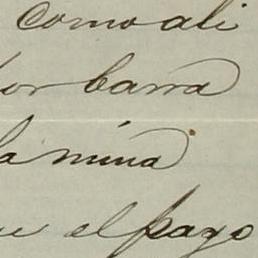 como ali
or barra
la mina
ue el pago